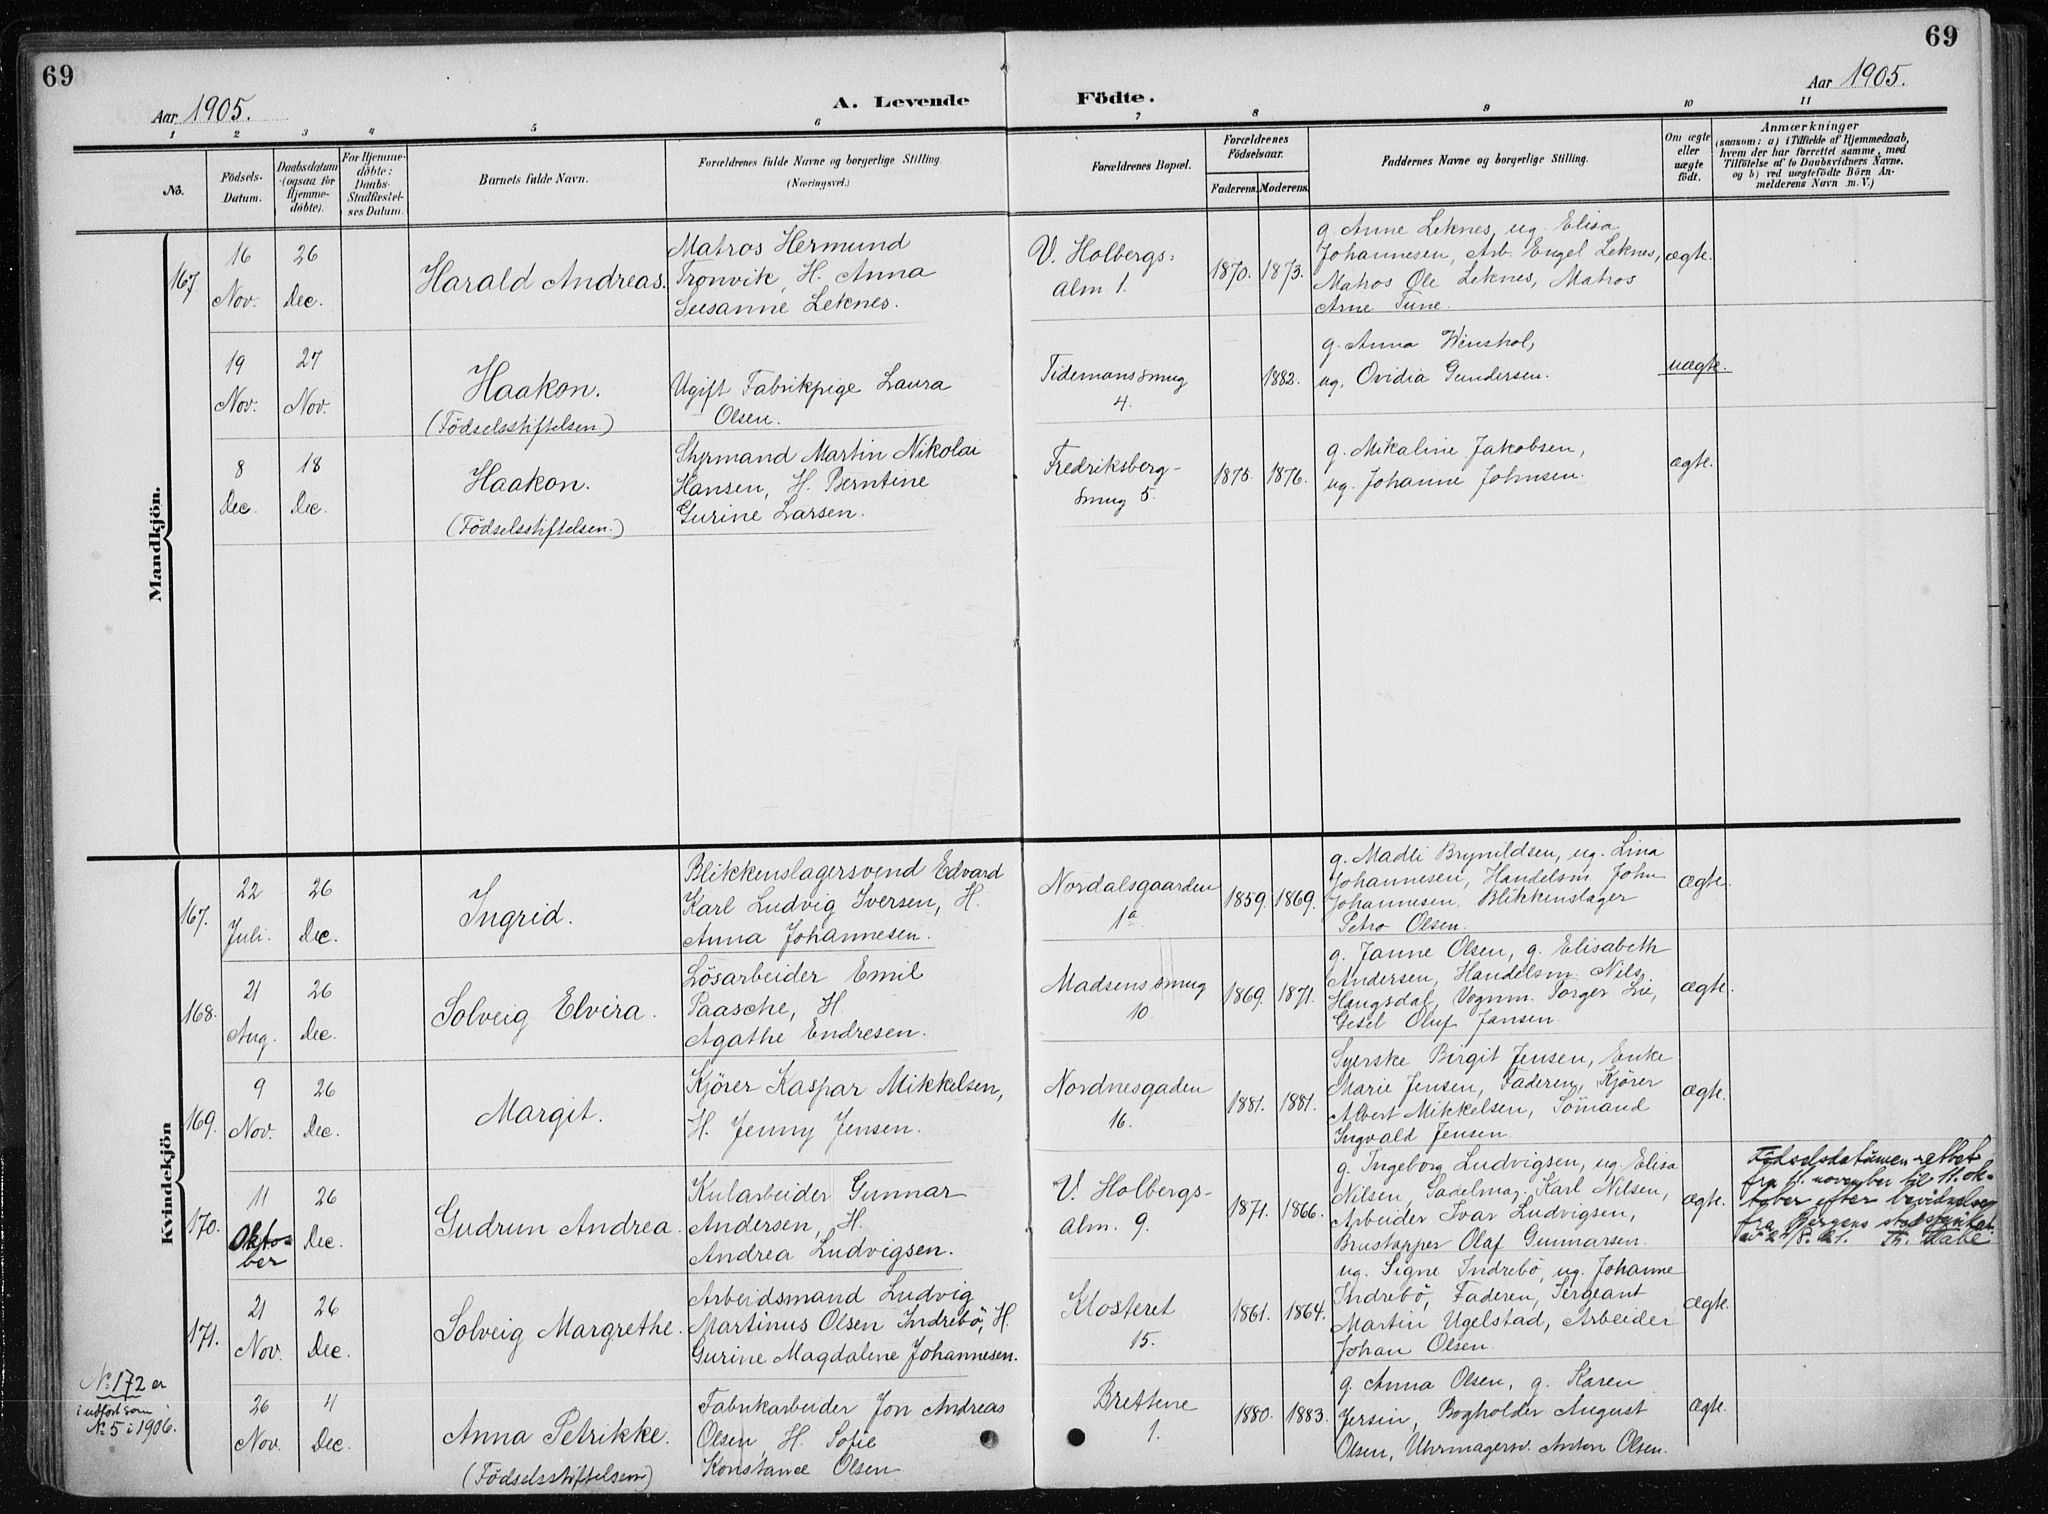 69
69
Aar 1905.
A. Levende Födte.
Aar 1905.
1 2 3 4 5 6 7 8 9 10 11
No.
Födsels-
Datum.
Daabsdatum
(ogsaa for
Hjemme-
döbte).
For Hjemme-
döbte:
Daabs-
Stadfæstel-
ses Datum.
Barnets fulde Navn.
Forældrenes fulde Navne og borgerlige Stilling.
(Næringsvei.)
Forældrenes Bopæl.
Forældrenes
Födselsaar.
Faderens. Moderens.
Faddernes Navne og borgerlige Stilling.
Om ægte
eller
uægte
födt.
Anmærkninger
(saasom: a) i Tilfælde af Hjemmedaab,
hvem der har forrettet samme, med
Tilföielse af to Daabsvidners Navne.
og b) ved uægtefödte Börn An-
melderens Navn m. V.)
Mandkjön.
167.
16
Nov.
26
Dec.
Harald Andreas.
Matros Hermund
Tronvik, H. Anna
Susanne Leknes.
V. Holbergs-
alm 1.
1870. 1873.
g. Anne Leknes, ug. Elisa
Johannesen, Arb. Engel Leknes,
Matros Ole Leknes, Matros
Arne Tune.
ægte.
19
Nov.
27
Nov.
Haakon.
(Födselsstiftelsen)
Ugift Fabrikpige Laura
Olsen.
Tidemanssmug
4.
1882.
g. Anna
ug. Ovidia Gundersen.
uægte.
8
Dec.
18
Dec.
Haakon.
(Födselsstiftelsen.)
Styrmand Martin Nikolai
Hansen, H. Berntine
Gurine Larsen.
Fredriksberg-
smug 5.
1875. 1876.
g. Mikaline Jakobsen,
ug. Johanne Johnsen.
ægte.
Kvindekjön
167.
22
Juli.
26
Dec.
Ingrid.
Blikkenslagersvend Edvard
Karl Ludvig Iversen, H.
Anna Johannesen.
Nordalsgaarden
1a
1859. 1869.
g. Madli Brynildsen, ug. Lina
Johannesen, Handelsm. John
Johannesen, Blikkenslager
Petro Olsen.
ægte.
168.
21
Aug.
26
Dec.
Solveig Elvira.
Lösarbeider Emil
Paasche, H.
Agathe Endresen.
Madsenssmug
10.
1869. 1871.
g. Janne Olsen, g. Elisabeth
Andersen, Handelsm. Nils
Haugsdal, Vognm. Torger Lie,
Gesel Oluf Jansen.
ægte.
169.
9
Nov.
26
Dec.
Margit.
Kjörer Kaspar Mikkelsen,
H. Jenny Jensen.
Nordnesgaden
16.
1881. 1881.
Syerske Birgit Jensen, Enke
Marie Jensen, Faderen, Kjörer
Albert Mikkelsen, Sömand
Ingvald Jensen.
ægte.
170.
11
Oktober
26
Dec.
Gudrun Andrea.
Kularbeider Gunnar
Andersen, H.
Andrea Ludvigsen.
V. Holbergs-
alm. 9.
1871. 1866.
g. Ingeborg Ludvigsen, ug. Elisa
Nilsen, Sadelmag. Karl Nilsen,
Arbeider Ivar Ludvigsen,
Brustapper Olaf Gunnarsen.
ægte.
Födselsdatumen rettet
fra 11. november til 11. ok-
tober efter bevidnelse
fra Bergens
av 24/8. 21. Th.
171.
21
Nov.
26
Dec.
Solveig Margrethe.
Arbeidsmand Ludvig
Martinus Olsen Indrebö, H.
Gurine Magdalene Johannesen.
Klosteret
15.
1861. 1864.
ug. Signe Indrebö, ug. Johanne
Indrebö, Faderen, Sergeant
Martin Ugelstad, Arbeider
Johan Olsen.
ægte.
No 172 er
indfört som
No 5 i 1906.
26
Nov.
4
Dec.
Anna Petrikke.
(Födselsstiftelsen)
Fabrikarbeider Jon Andreas
Olsen, H. Sofie
Konstance Olsen
Brettene
1.
1880. 1883.
g. Anna Olsen, g. Karen
Jersin, Bogholder August
Olsen, Uhrmagersv. Anton Olsen.
ægte.